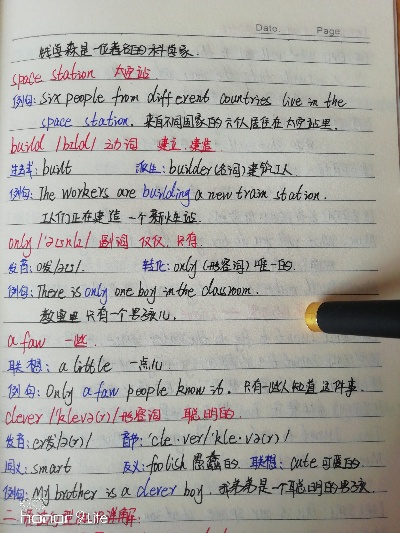 Date. Page.
钱学森是一位著名的科学家.
space station 太空站
例句: Six people from different countries live in the
space station. 来自不同国家的六个人居住在太空站里.
build /bɪld/ 动词 建立 建造
过去式: built 派生: builder(名词)建筑工人
例句: The workers are building a new train station.
工人们正在建造一个新火车站.
only /'əʊnlɪ/ 副词 仅仅, 只有
发音: o发/əʊ/. 转化: only (形容词) 唯一的.
例句: There is only one boy in the classroom.
教室里只有一个男孩儿.
a faw 一些
联想: a little 一点儿
例句: Only a faw people know it. 只有一些人知道这件事.
clever /'klevə(r)/ 形容词 聪明的.
发音: er发/ə(r)/ 音节: 'cle·ver/'kle·və(r)/
同义: smart 反义: foolish 愚蠢的 联想: cute 可爱的
例句: My brother is a clever boy. 我弟弟是一个聪明的男孩.
honor 9 Lite